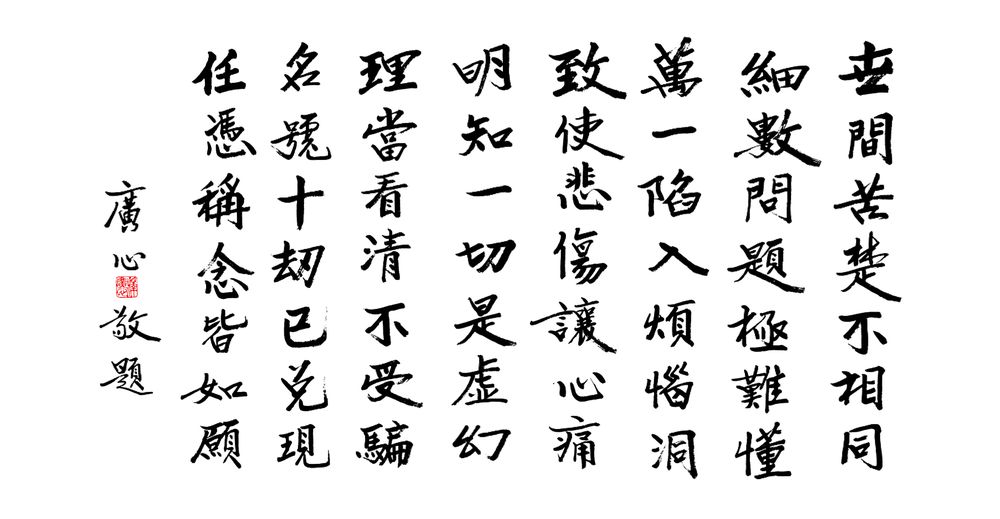 世間苦楚不相同
細數問題極難懂
萬一陷入煩惱洞
致使悲傷讓心痛
明知一切是虛幻
理當看清不受騙
名號十劫已兑現
任憑稱念皆如願
廣心敬題